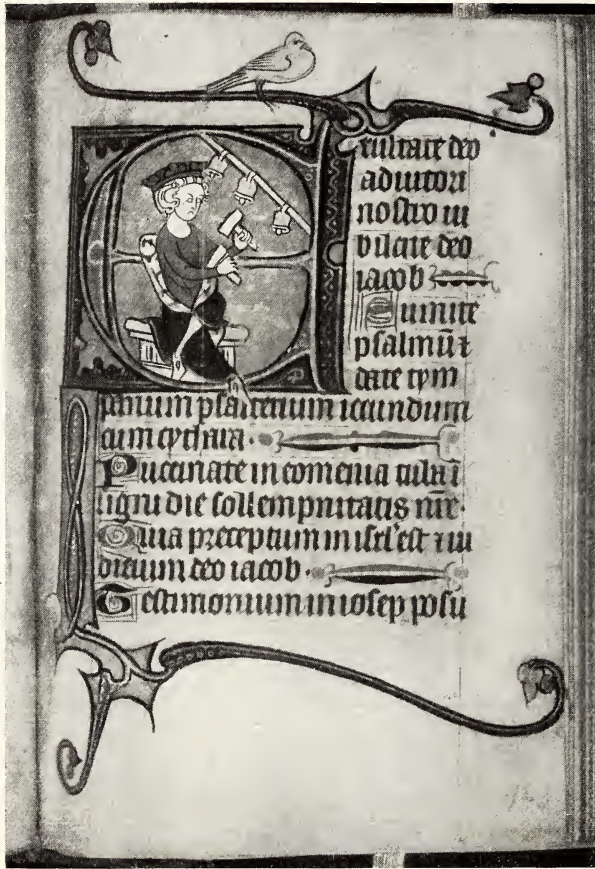 Exultate deo
adiutori
nostro iu
bilate deo
iacob
Sumite
psalmū ⁊
date tym
panum psalterium iocundum
cum cythara.
Buccinate in
signi die sollempnitatis nr̄e.
Quia preceptum in isrl' est ⁊ iu
dicium deo iacob.
Testimonium in iosep posu